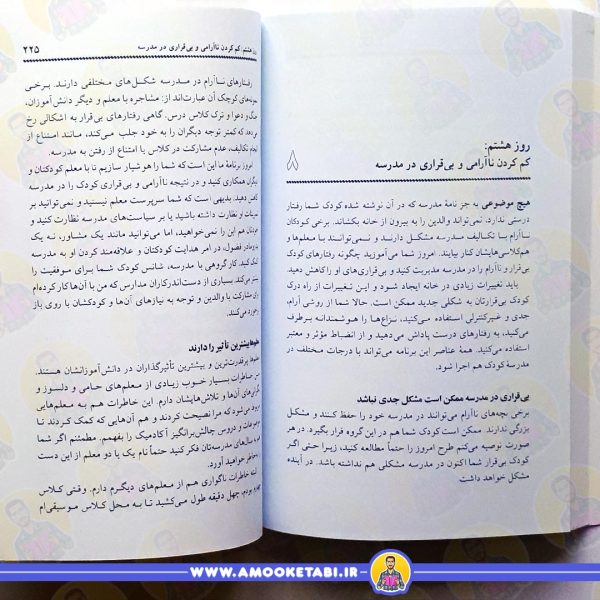 روز هشتم:
کم کردن ناآرامی و بی‌قراری در مدرسه
۸
هیچ موضوعی به جز نامهٔ مدرسه که در آن نوشته شده کودک شما رفتار
درستی ندارد، نمی‌تواند والدین را به بیرون از خانه بکشاند. برخی کودکان
ناآرام با تکالیف مدرسه مشکل دارند و نمی‌توانند با معلم‌ها و
هم‌کلاسی‌هایشان کنار بیایند. امروز شما می‌آموزید چگونه رفتارهای کودک
بی‌قرار و ناآرام را در مدرسه مدیریت کنید و بی‌قراری‌های او را کاهش دهید.
باید تغییرات زیادی در خانه ایجاد شود و این تغییرات از راه درک
کودک بی‌قرارتان به شکلی جدید ممکن است. حالا شما از روشی آرام،
جدی و غیرکنترلی استفاده می‌کنید، نزاع‌ها را هوشمندانه برطرف
می‌کنید، به رفتارهای درست پاداش می‌دهید و از انضباط مؤثر و معتبر
استفاده می‌کنید. همهٔ عناصر این برنامه می‌تواند با درجات مختلف در
مدرسهٔ کودک هم اجرا شود.
بی‌قراری در مدرسه ممکن است مشکل جدی نباشد
برخی بچه‌های ناآرام می‌توانند در مدرسه خود را حفظ کنند و مشکل
بزرگی ندارند. ممکن است کودک شما هم در این گروه قرار بگیرد. در هر
صورت توصیه می‌کنم طرح امروز را حتماً مطالعه کنید، زیرا حتی اگر
کودک بی‌قرار شما اکنون در مدرسه مشکلی هم نداشته باشد، در آینده
مشکل خواهد داشت
روز هشتم: کم کردن ناآرامی و بی‌قراری در مدرسه ۲۲۵
رفتارهای ناآرام در مدرسه شکل‌های مختلفی دارند. برخی
نمونه‌های کوچک آن عبارت‌اند از: مشاجره با معلم و دیگر دانش‌آموزان،
جنگ و دعوا و ترک کلاس درس. گاهی رفتارهای بی‌قرار به اشکالی رخ
می‌دهد که کمتر توجه دیگران را به خود جلب می‌کند، مانند امتناع از
انجام تکالیف، عدم مشارکت در کلاس یا امتناع از رفتن به مدرسه.
امروز برنامهٔ ما این است که شما را هوشیار سازیم تا با معلم کودکتان و
دیگران همکاری کنید و در نتیجه ناآرامی و بی‌قراری کودک را در مدرسه
کاهش دهید. بدیهی است که شما سرپرست معلم نیستید و نمی‌توانید بر
جزئیات او نظارت داشته باشید یا بر سیاست‌های مدرسه نظارت کنید و
هم این را نمی‌خواهید، اما می‌توانید مانند یک مشاور، نه یک
مادر فضول، در امر هدایت کودکتان و علاقه‌مند کردن او به مدرسه
کمک کنید. کار گروهی با مدرسه، شانس کودک شما برای موفقیت را
بیشتر می‌کند. بسیاری از دست‌اندرکاران مدارس که من با آن‌ها کار کرده‌ام
برای مشارکت با والدین و توجه به نیازهای آن‌ها و کودکشان با روی باز
برخورد می‌کنند.
معلم‌ها بیشترین تأثیر را دارند
معلم‌ها پرقدرت‌ترین و بیشترین تأثیرگذاران در دانش‌آموزانشان هستند.
من خاطرات بسیار خوب زیادی از معلم‌های حامی و دلسوز و
نگرانی‌های آن‌ها و تلاش‌هایشان دارم. این خاطرات هم به معلم‌هایی
مربوط می‌شود که مرا نصیحت کردند و هم به آن‌هایی که کمک کردند تا
موضوعات و دروس چالش‌برانگیز آکادمیک را بفهمم. مطمئنم اگر شما
هم به سال‌های مدرسه‌تان فکر کنید حتماً نام یک یا دو معلم از این دست
به خاطر خواهید آورد.
البته خاطرات ناگواری هم از معلم‌های دیگرم دارم. وقتی کلاس
بودم، چهل دقیقه طول می‌کشید تا به محل کلاس موسیقی‌ام
WWW.AMOOKETABI.IR